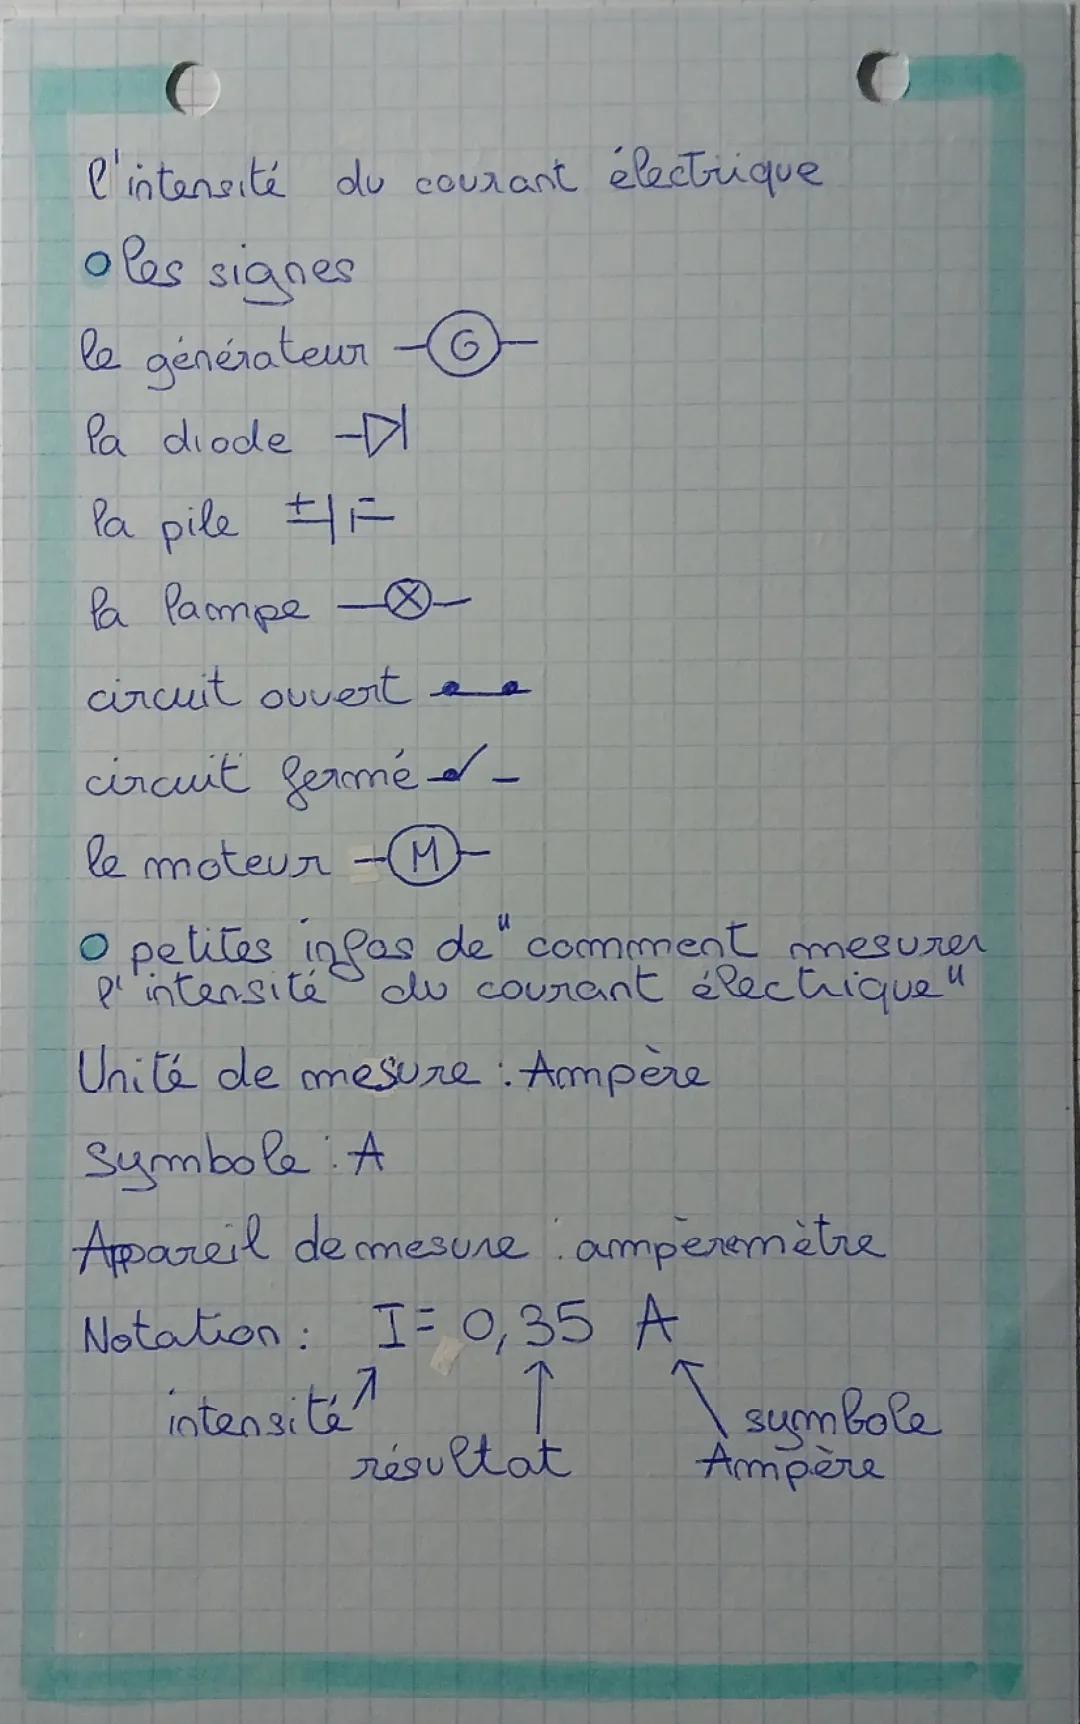 l'intensité du courant électrique
les signes
le générateur G
la diode
la pile + -
la lampe
circuit ouvert
circuit fermé
le moteur M
petites infos de "comment mesurer
l'intensité du courant électrique"
Unité de mesure : Ampère
Symbole : A
Appareil de mesure : ampèremètre
Notation : I = 0,35 A
intensité
résultat
symbole
Ampère